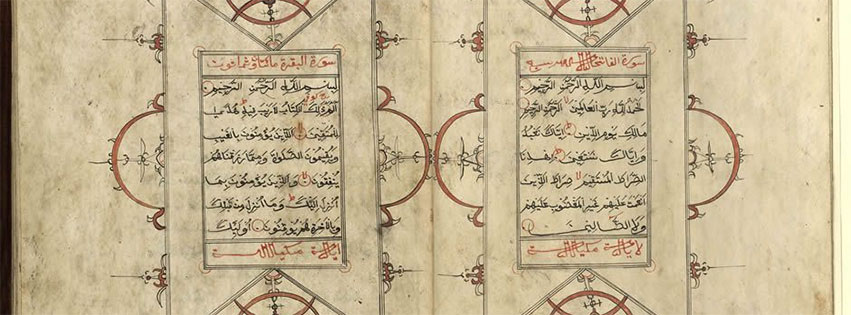 سورة الفاتحة
بسم الله الرحمن الرحيم
الحمد لله رب العالمين الرحمن الرحيم
مالك يوم الدين اياك نعبد
واياك نستعين اهدنا
الصراط المستقيم صراط الذين
انعمت عليهم غير المغضوب عليهم
ولا الضالين
سورة البقرة مائتان وثمانون
بسم الله الرحمن الرحيم
الم ذلك الكتاب لا ريب فيه هدى
للمتقين الذين يؤمنون بالغيب
ويقيمون الصلوة ومما رزقناهم
ينفقون والذين يؤمنون بما
انزل اليك وما انزل من قبلك
وبالآخرة هم يوقنون اولئك